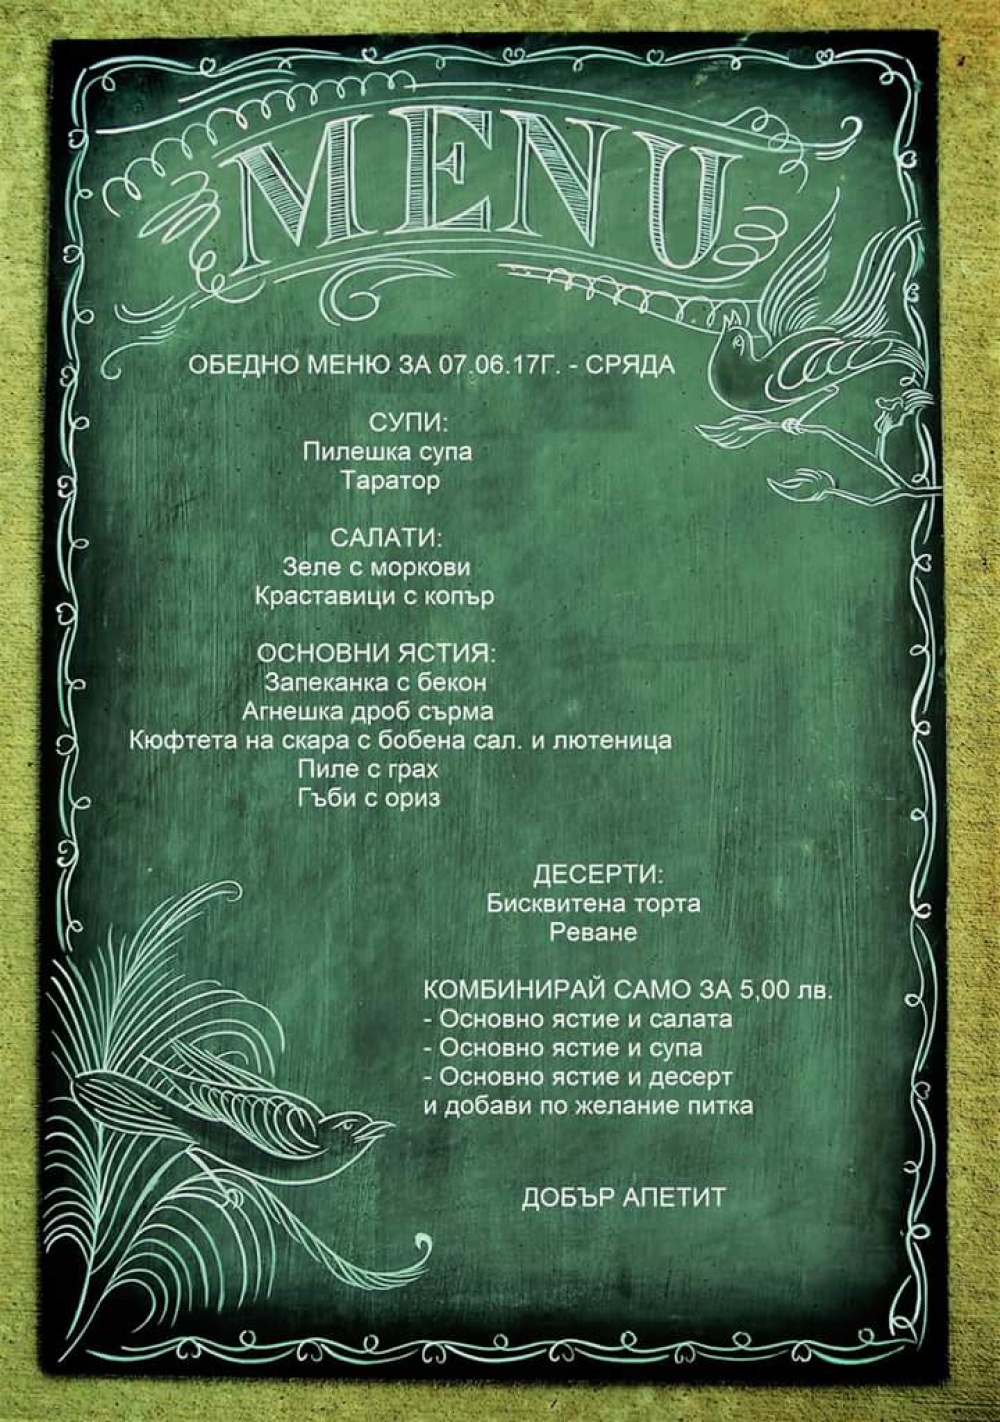 MENU
ОБЕДНО МЕНЮ ЗА 07.06.17Г. - СРЯДА
СУПИ:
Пилешка супа
Таратор
САЛАТИ:
Зеле с моркови
Краставици с копър
ОСНОВНИ ЯСТИЯ:
Запеканка с бекон
Агнешка дроб сърма
Кюфтета на скара с бобена сал. и лютеница
Пиле с грах
Гъби с ориз
ДЕСЕРТИ:
Бисквитена торта
Реване
КОМБИНИРАЙ САМО ЗА 5,00 лв.
- Основно ястие и салата
- Основно ястие и супа
- Основно ястие и десерт
и добави по желание питка
ДОБЪР АПЕТИТ